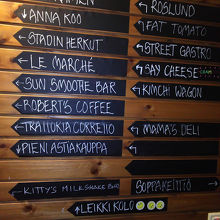 ANNA KOO
STADIN HERKUT
LE MARCHÉ
SUN SMOOTHIE BAR
ROBERT'S COFFEE
TRATTORIA CORRELLO
PIENI ASTIAKAUPPA
KITTY'S MILKSHAKE BAR
LEIKKI KOLO
ROSLUND
FAT TOMATO
STREET GASTRO
SAY CHEESE
KIMCHI WAGON
MAMA'S DELI
SOPPAKEITTIÖ